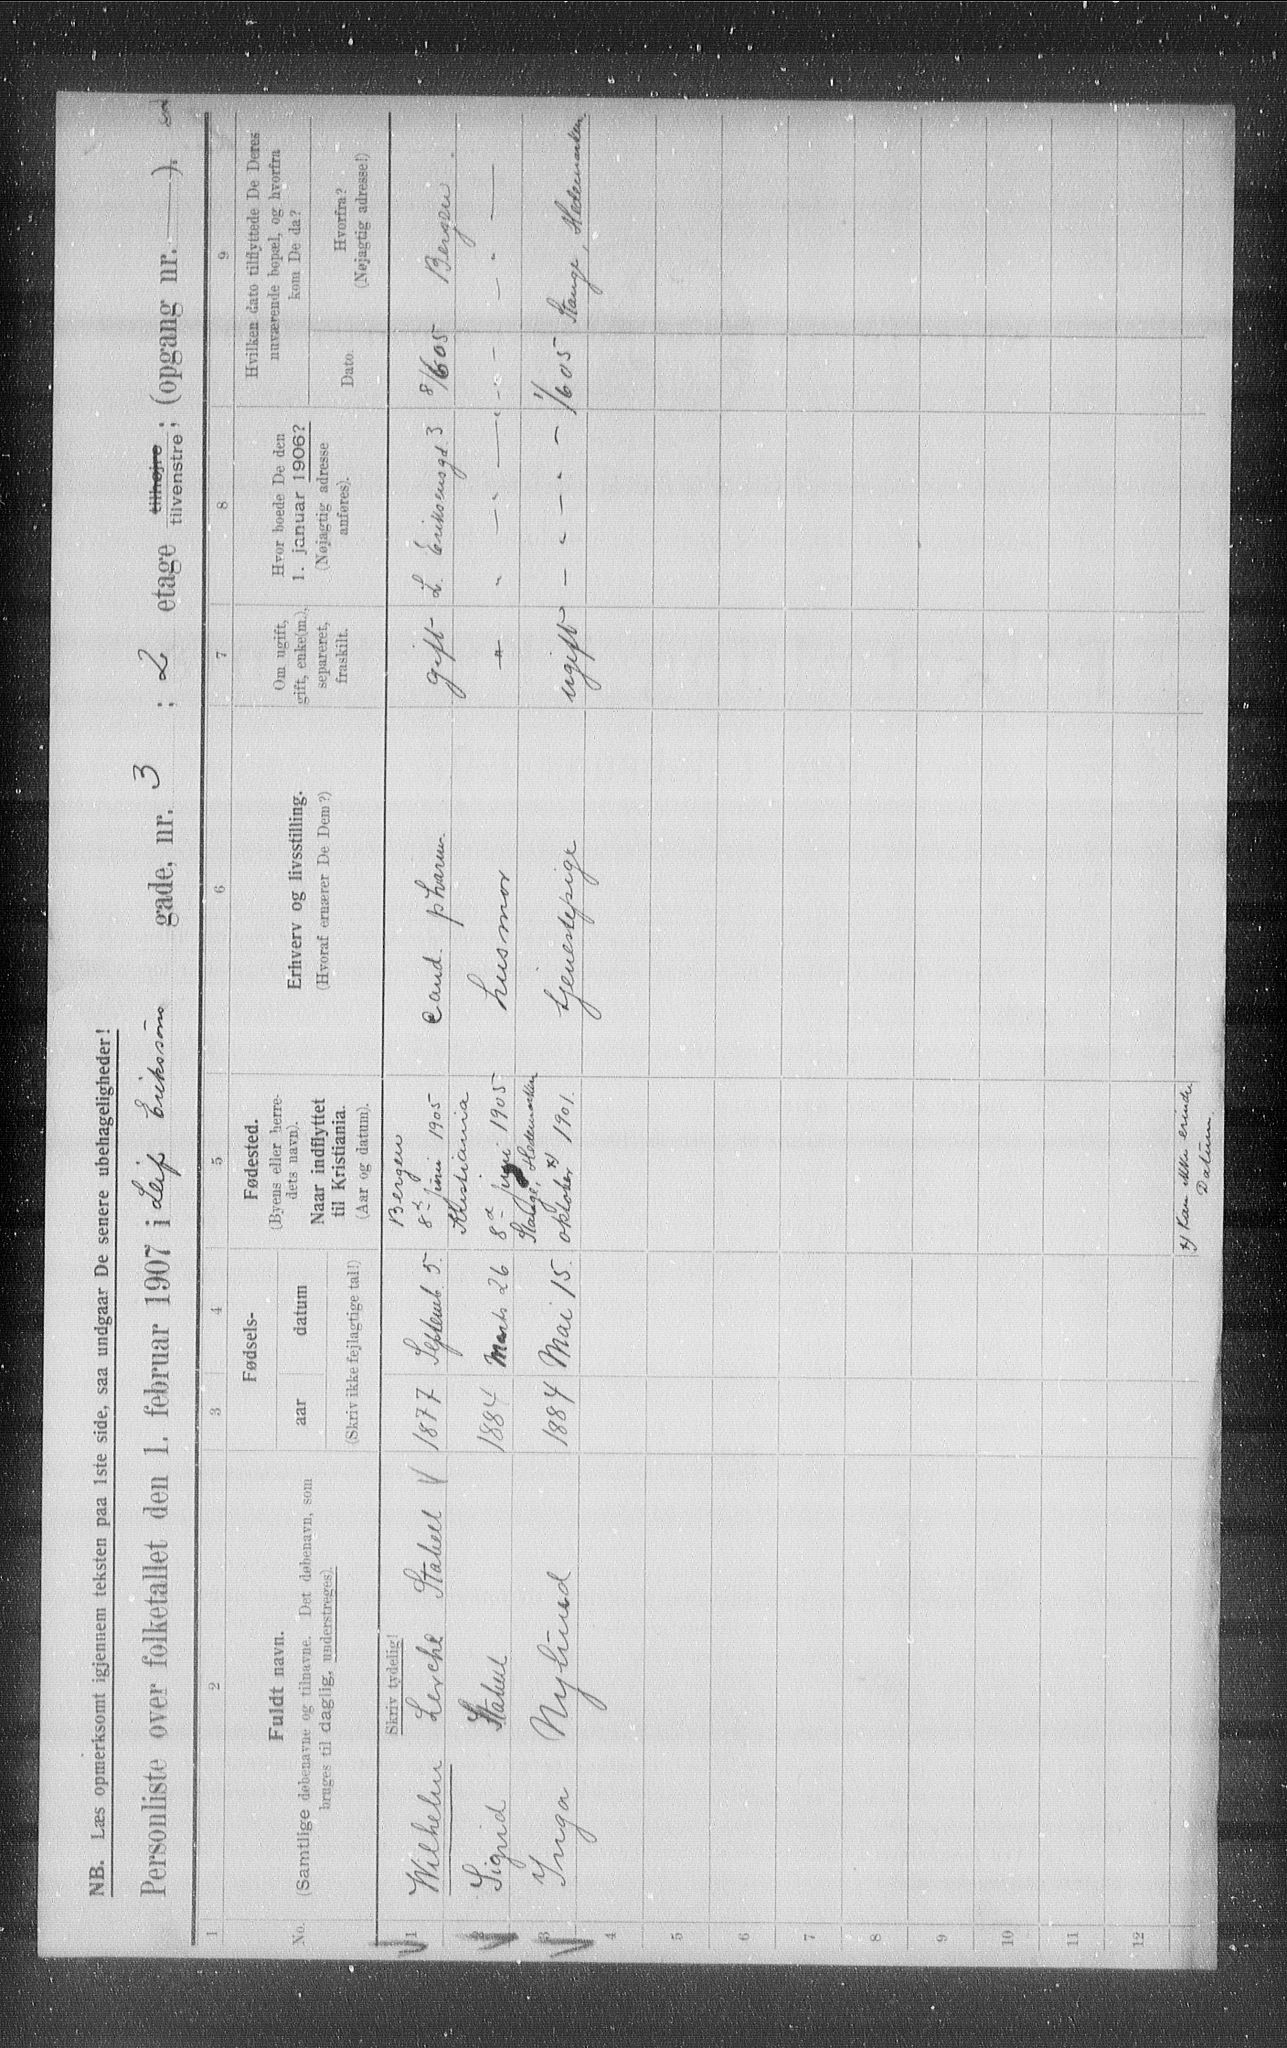 NB. Læs opmerksomt igjennem teksten paa 1ste side, saa undgaar De senere ubehageligheder!
Personliste over folketallet den 1. februar 1907 i Leif Eriksøns gade, nr. 3 ; 2 etage tilhøjre ; tilvenstre; (opgang nr. — ).
1 2 3 4 5 6 7 8 9
No.
Fuldt navn.
(Samtlige døbenavne og tilnavne. Det døbenavn, som
bruges til daglig, understreges).
Fødsels-
aar datum
(Skriv ikke fejlagtige tal!)
Fødested.
(Byens eller herre-
dets navn).
Naar indflyttet
til Kristiania.
(Aar og datum).
Erhverv og livsstilling.
(Hvoraf ernærer De Dem?)
Om ugift,
gift, enke(m.),
separeret,
fraskilt.
Hvor boede De den
1. januar 1906?
(Nøjagtig adresse
anføres).
Hvilken dato tilflyttede De Deres
nuværende bopæl, og hvorfra
kom De da?
Dato.
Hvorfra?
(Nøjagtig adresse!)
Skriv tydelig!
Bergen
1 Wilhelm Lerche Stabell V 1877 Septemb. 5. 8d juni 1905 cand. pharm. gift L. Eriksensgd. 3 8/6 05 Bergen
Kristiania
2 Sigrid Stabell 1884 Marts 26 8d juni 1905 husmor " " — " — " — " — " —
Stange, Hedemarken
3 Inga Nylund 1884 Mai 15. oktober x) 1901. tjenestepige ugift — " — " — 1/6 05 Stange, Hedemarken
4
5
6
7
8
9
10
11
12
x) Kan ikke erindre
Datum.